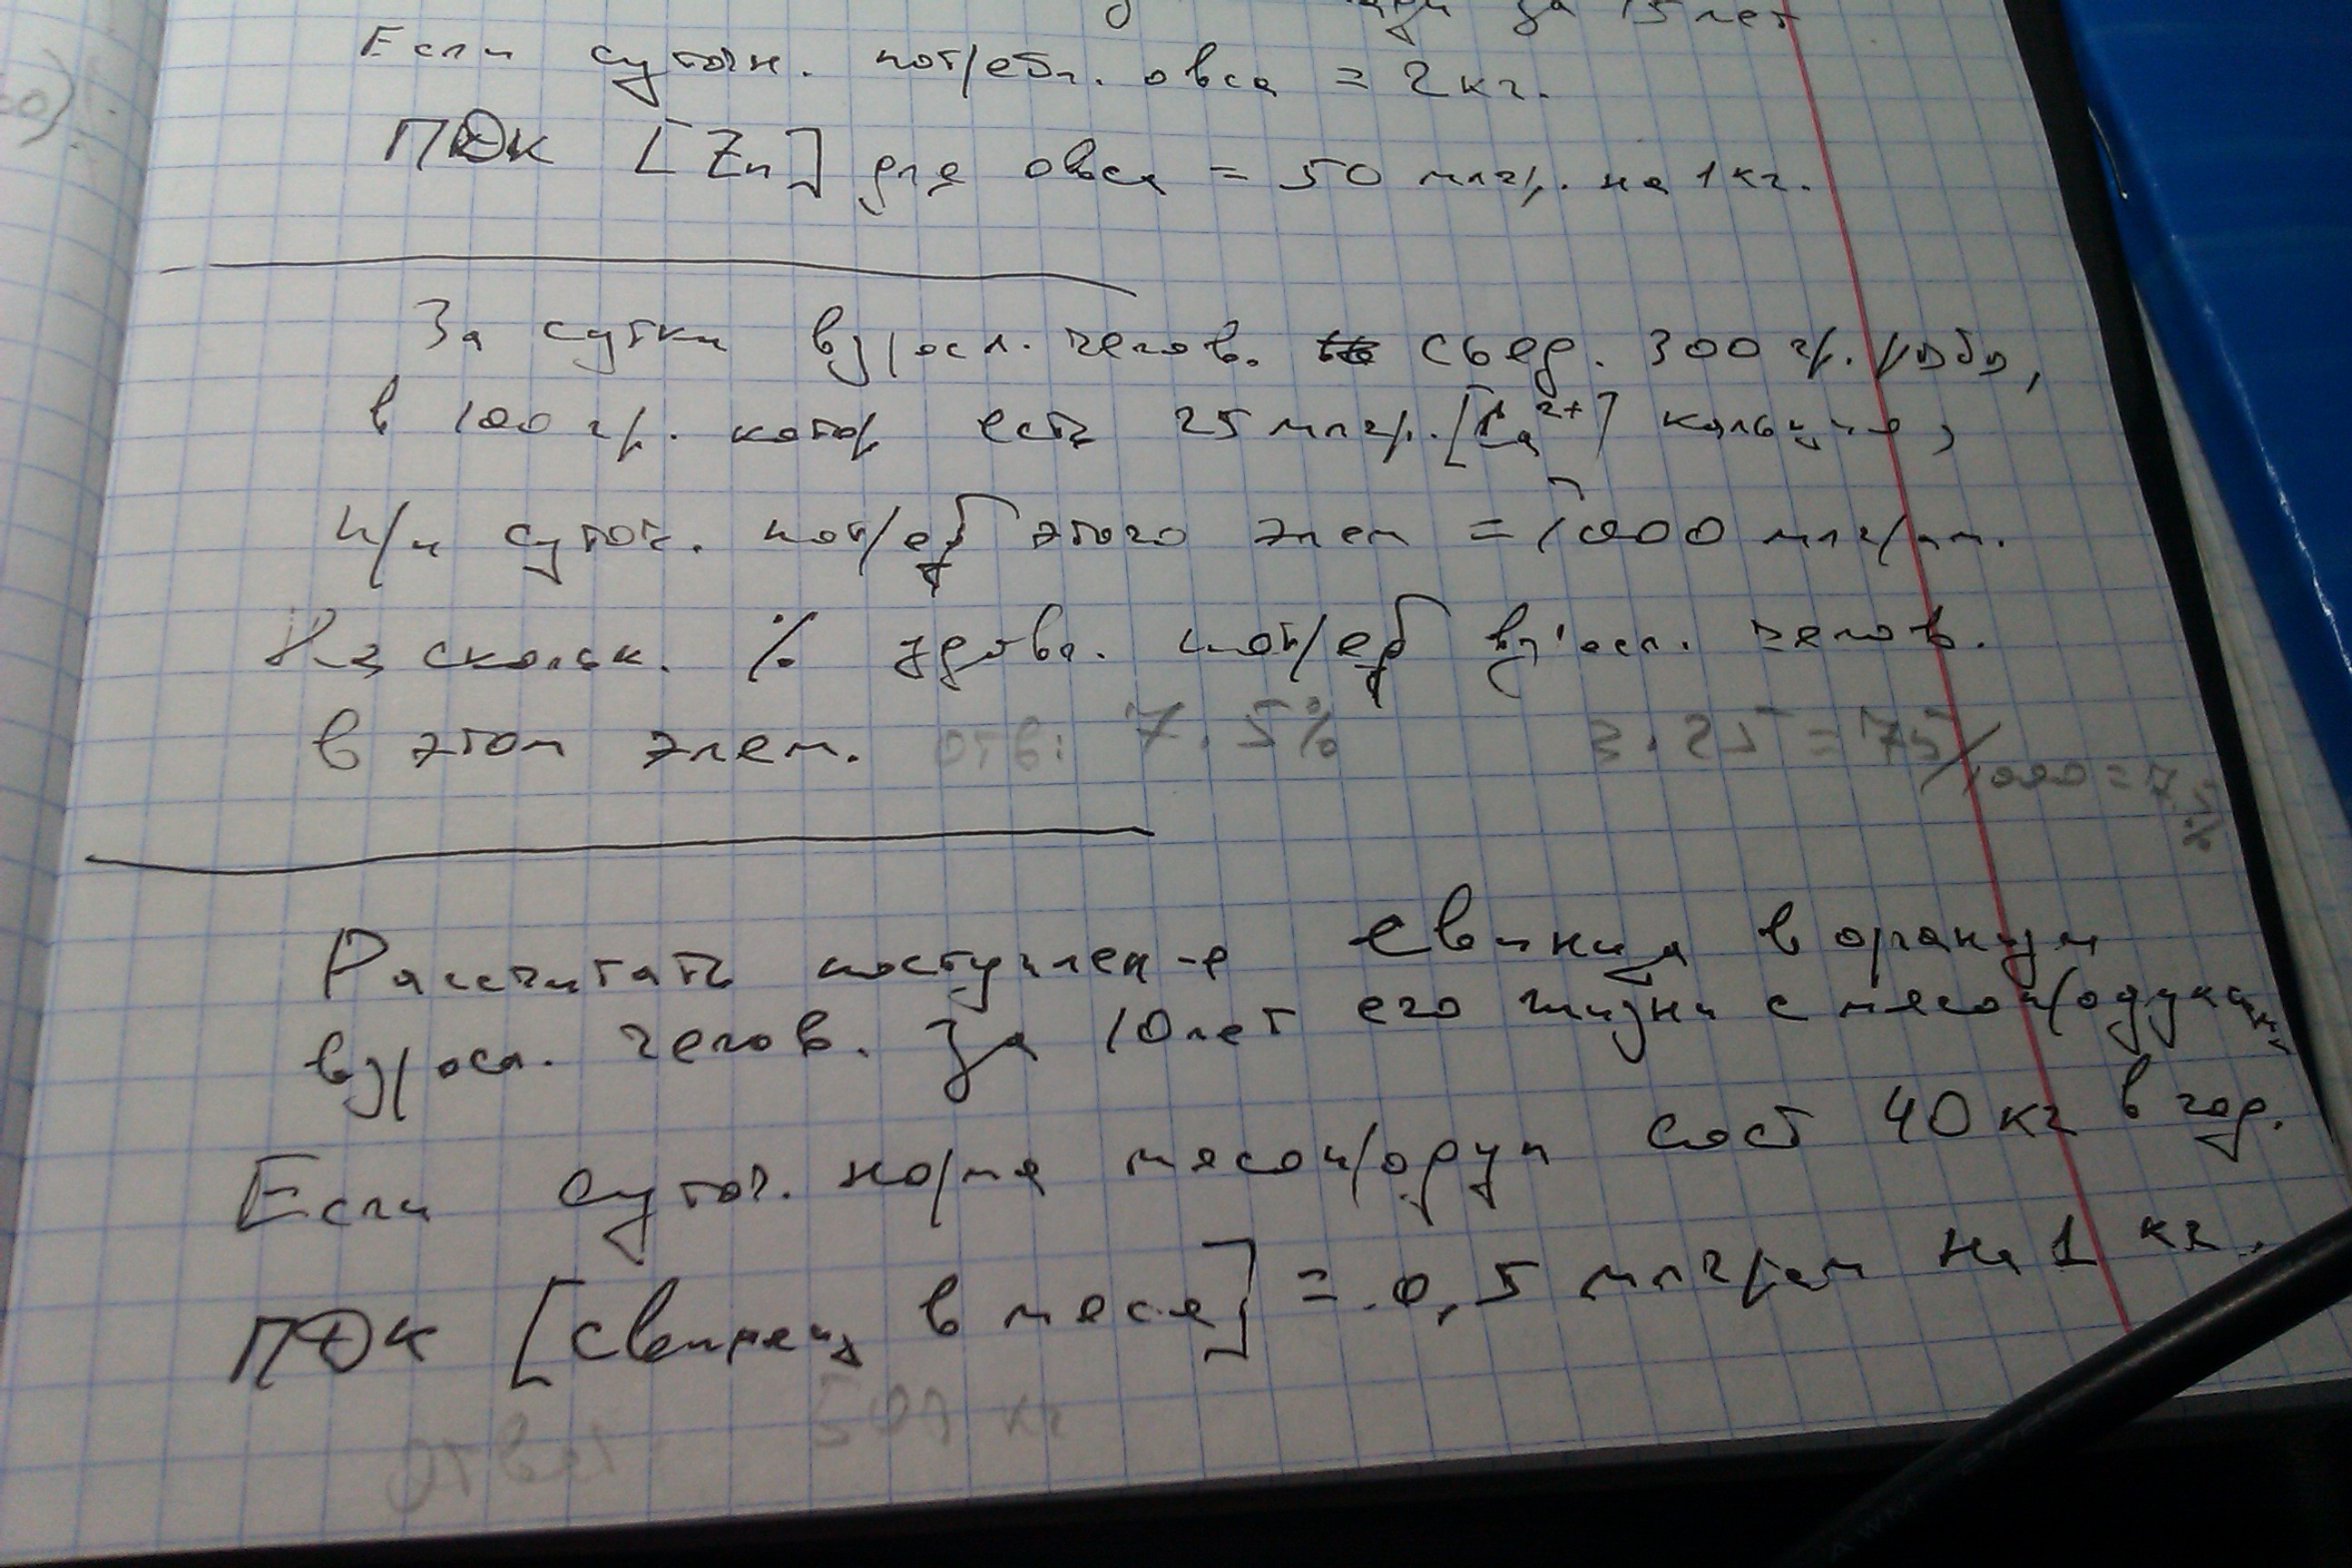 за 15 лет
Если суточн. потребл. овса = 2 кг.
ПДК [Zn] для овса = 50 млгр. на 1 кг.
За сутки взросл. челов. съед. 300 гр. рыбы,
в 100 гр. котор есть 25 млгр. [Ca²⁺] кальция,
при суточ. потреб этого элем = 1000 млгрмм.
На скольк. % удовл. потреб взросл. челов.
в этом элем. отв: 7.5% 3 · 25 = 75/1000 = 7.5 %
Рассчитать поступлен-е свинца в организм
взросл. челов. за 10 лет его жизни с мясопродукции
Если суточ. норма мясопродук сост 40 кг в год.
ПДК [свинец в мясе] = 0,5 млграм на 1 кг.
Ответ